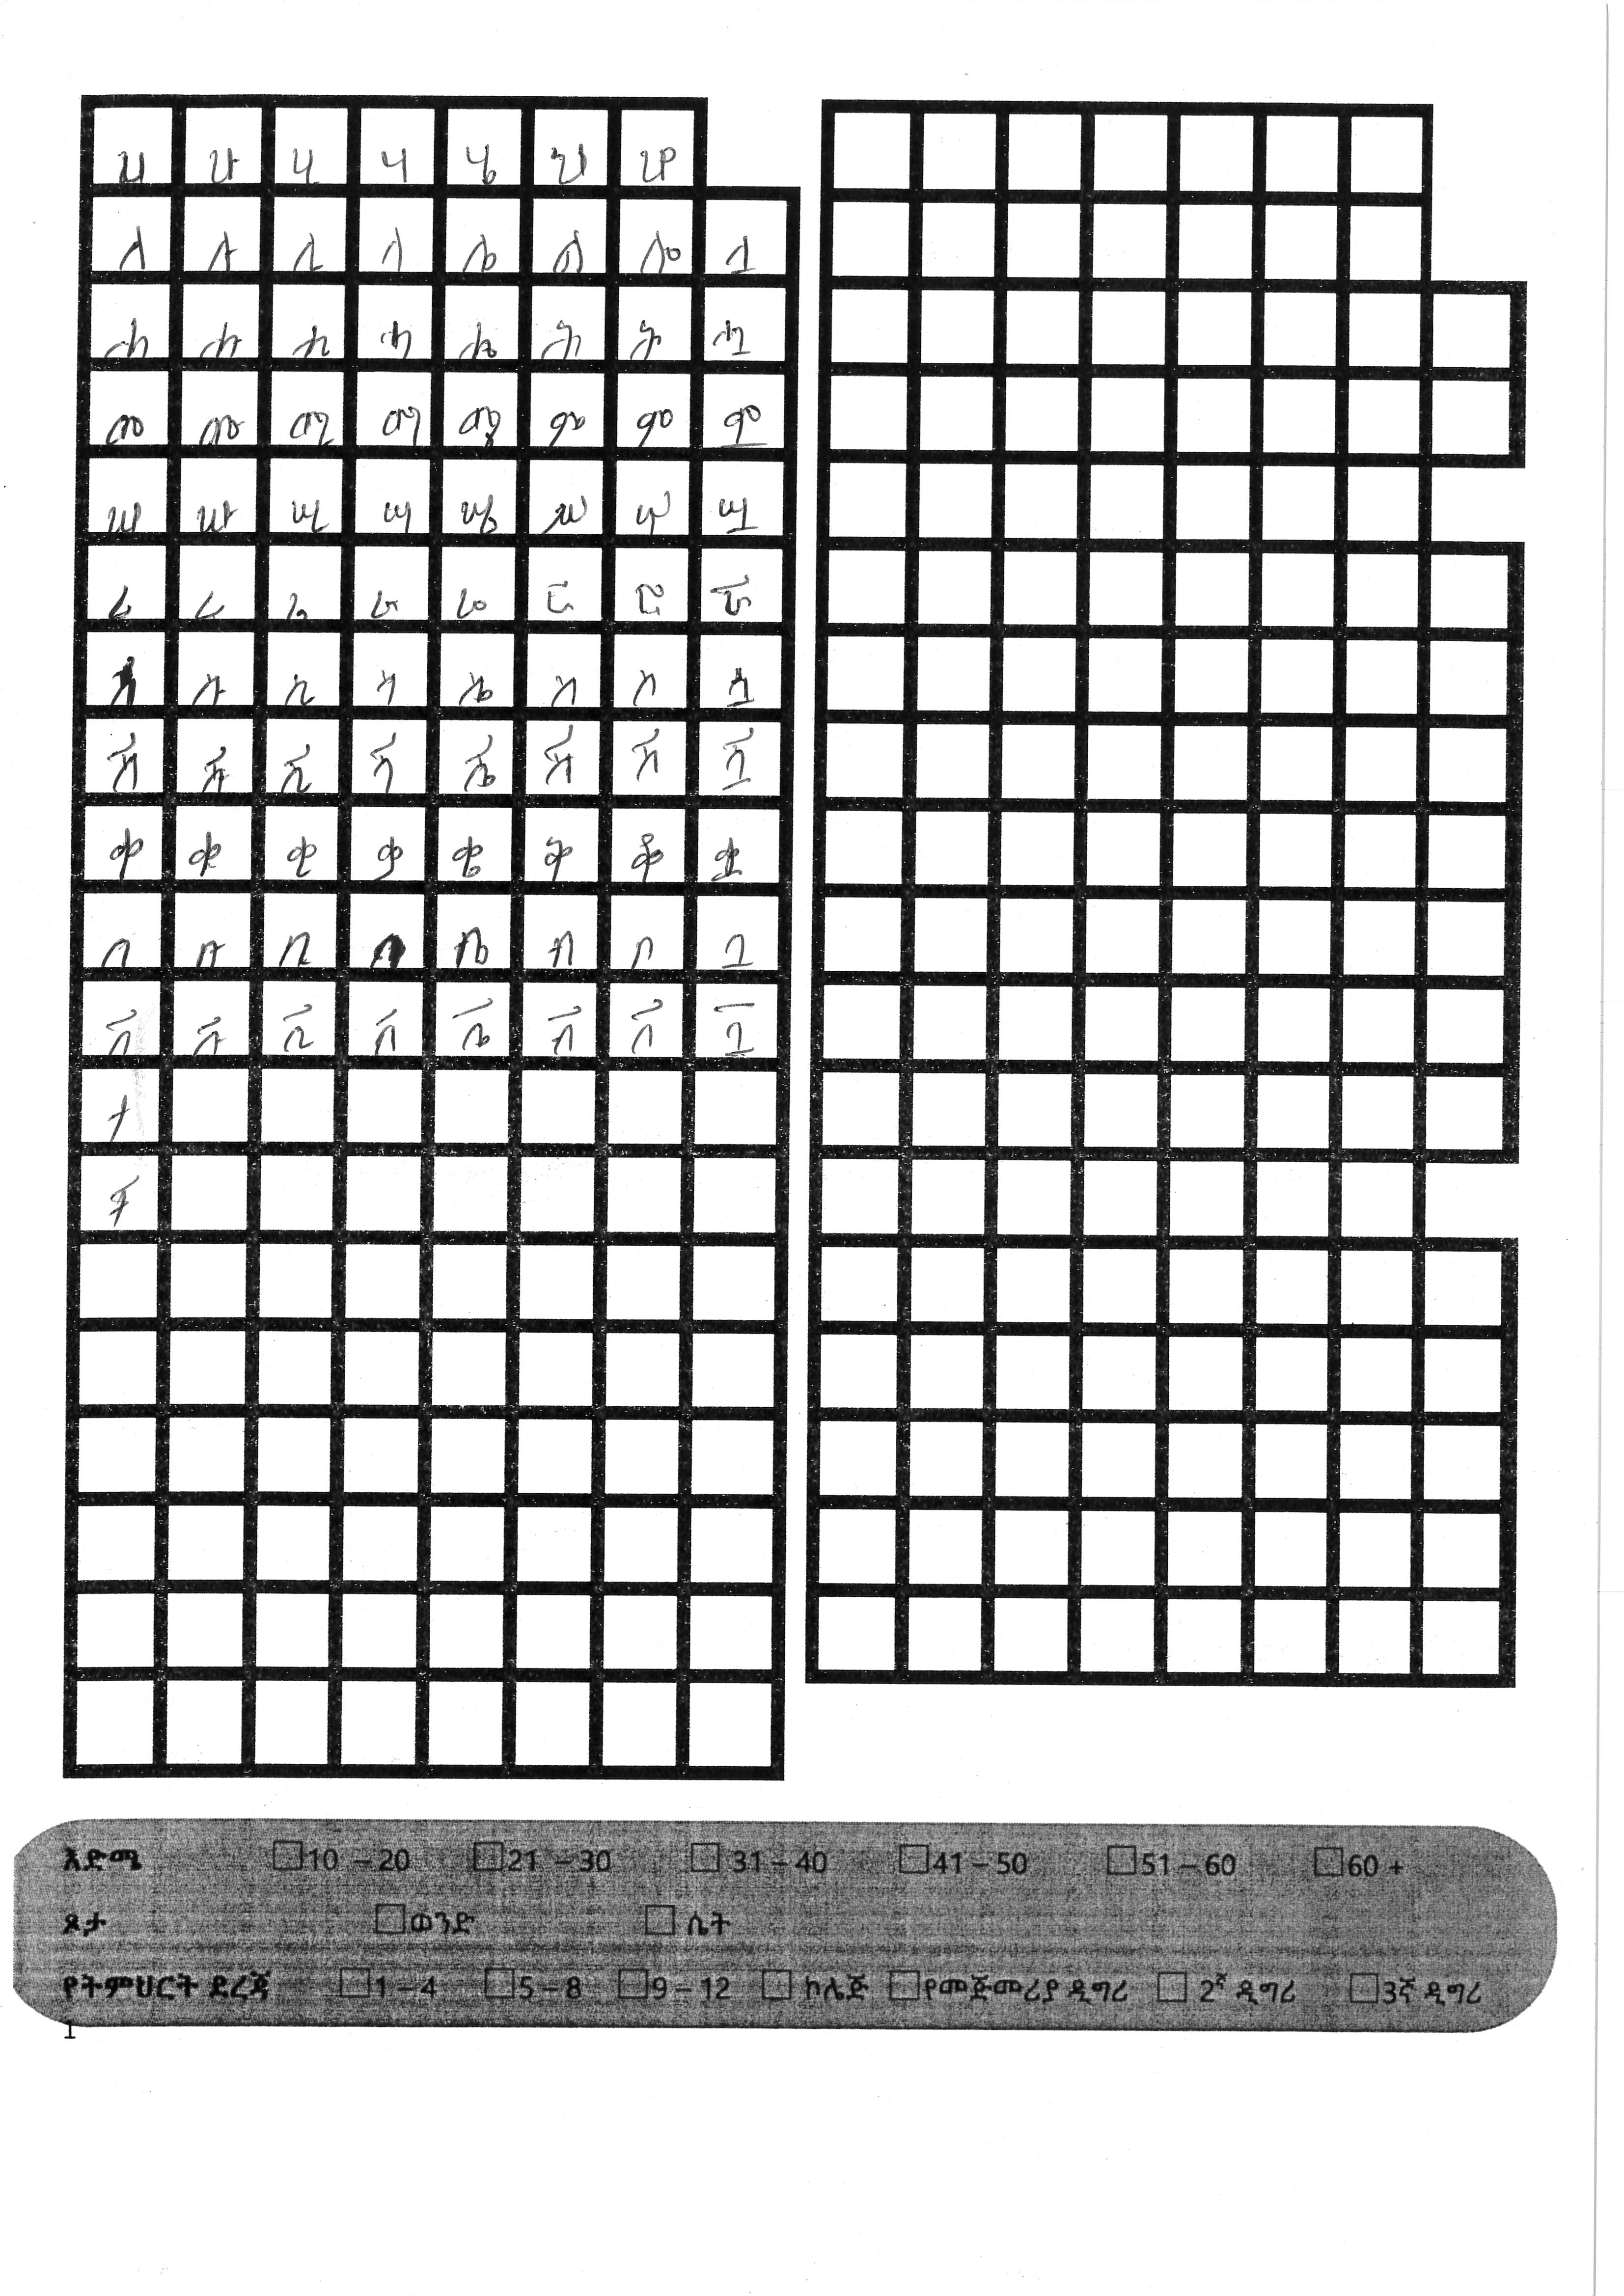 ሀ ሁ ሂ ሃ ሄ ህ ሆ
ለ ሉ ሊ ላ ሌ ል ሎ ሏ
ሐ ሑ ሒ ሓ ሔ ሕ ሖ ሗ
መ ሙ ሚ ማ ሜ ም ሞ ሟ
ሠ ሡ ሢ ሣ ሤ ሥ ሦ ሧ
ረ ሩ ሪ ራ ሬ ር ሮ ሯ
ሰ ሱ ሲ ሳ ሴ ስ ሶ ሷ
ሸ ሹ ሺ ሻ ሼ ሽ ሾ ሿ
ቀ ቁ ቂ ቃ ቄ ቅ ቆ ቋ
በ ቡ ቢ ባ ቤ ብ ቦ ቧ
ቨ ቩ ቪ ቫ ቬ ቭ ቮ ቯ
ተ
ቸ
እድሜ 10 – 20 21 – 30 31 – 40 41 – 50 51 – 60 60 +
ጾታ ወንድ ሴት
የትምህርት ደረጃ 1 – 4 5 – 8 9 – 12 ኮሌጅ የመጀመሪያ ዲግሪ 2ኛ ዲግሪ 3ኛ ዲግሪ
1